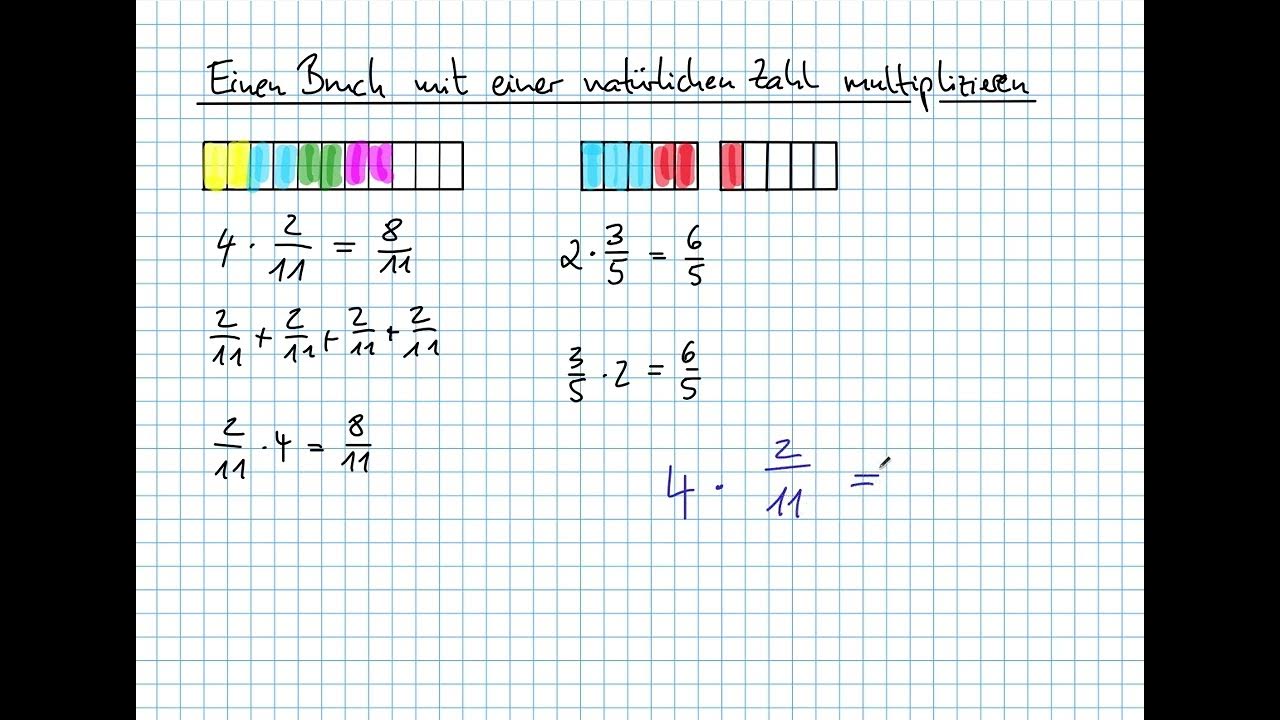 Einen Bruch mit einer natürlichen Zahl multiplizieren
4 · 2/11 = 8/11
2/11 + 2/11 + 2/11 + 2/11
2/11 · 4 = 8/11
2 · 3/5 = 6/5
3/5 · 2 = 6/5
4 · 2/11 =